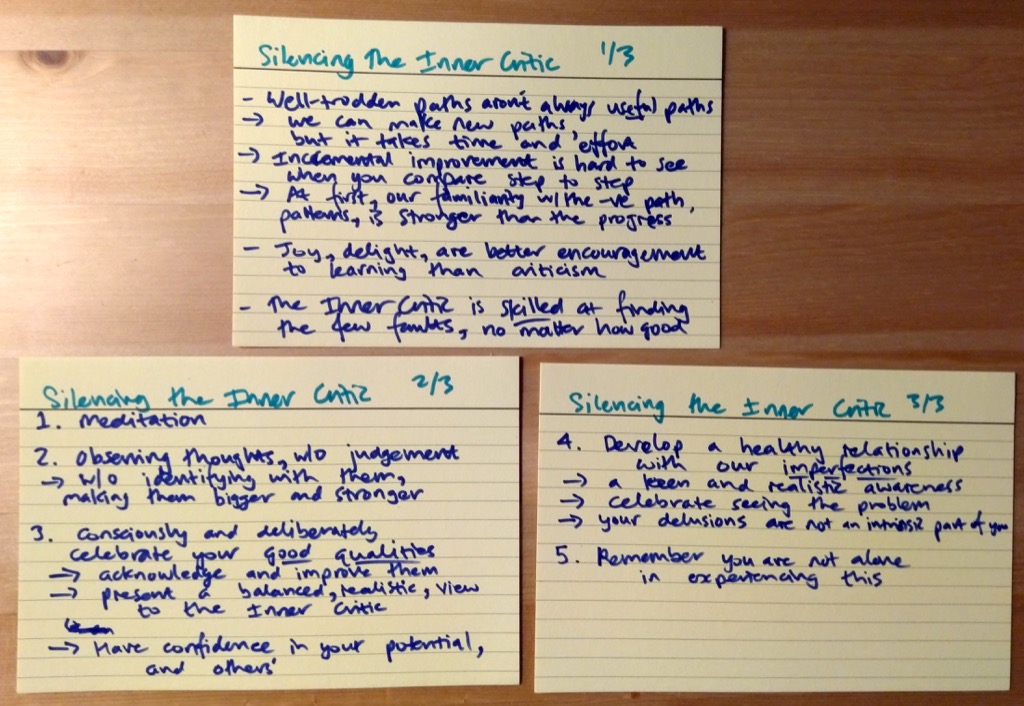 Silencing the Inner Critic 1/3
- Well-trodden paths aren't always useful paths
→ we can make new paths,
but it takes time and effort
→ Incremental improvement is hard to see
when you compare step to step
→ At first, our familiarity w/ the -ve path,
patterns, is stronger than the progress
- Joy, delight, are better encouragement
to learning than criticism
- The Inner Critic is skilled at finding
the few faults, no matter how good
Silencing the Inner Critic 2/3
1. Meditation
2. Observing thoughts, w/o judgement
→ w/o identifying with them,
making them bigger and stronger
3. Consciously and deliberately
celebrate your good qualities
→ acknowledge and improve them
→ present a balanced, realistic, view
to the Inner Critic
→ Have confidence in your potential,
and others'
Silencing the Inner Critic 3/3
4. Develop a healthy relationship
with our imperfections
→ a keen and realistic awareness
→ celebrate seeing the problem
→ your delusions are not an intrinsic part of you
5. Remember you are not alone
in experiencing this